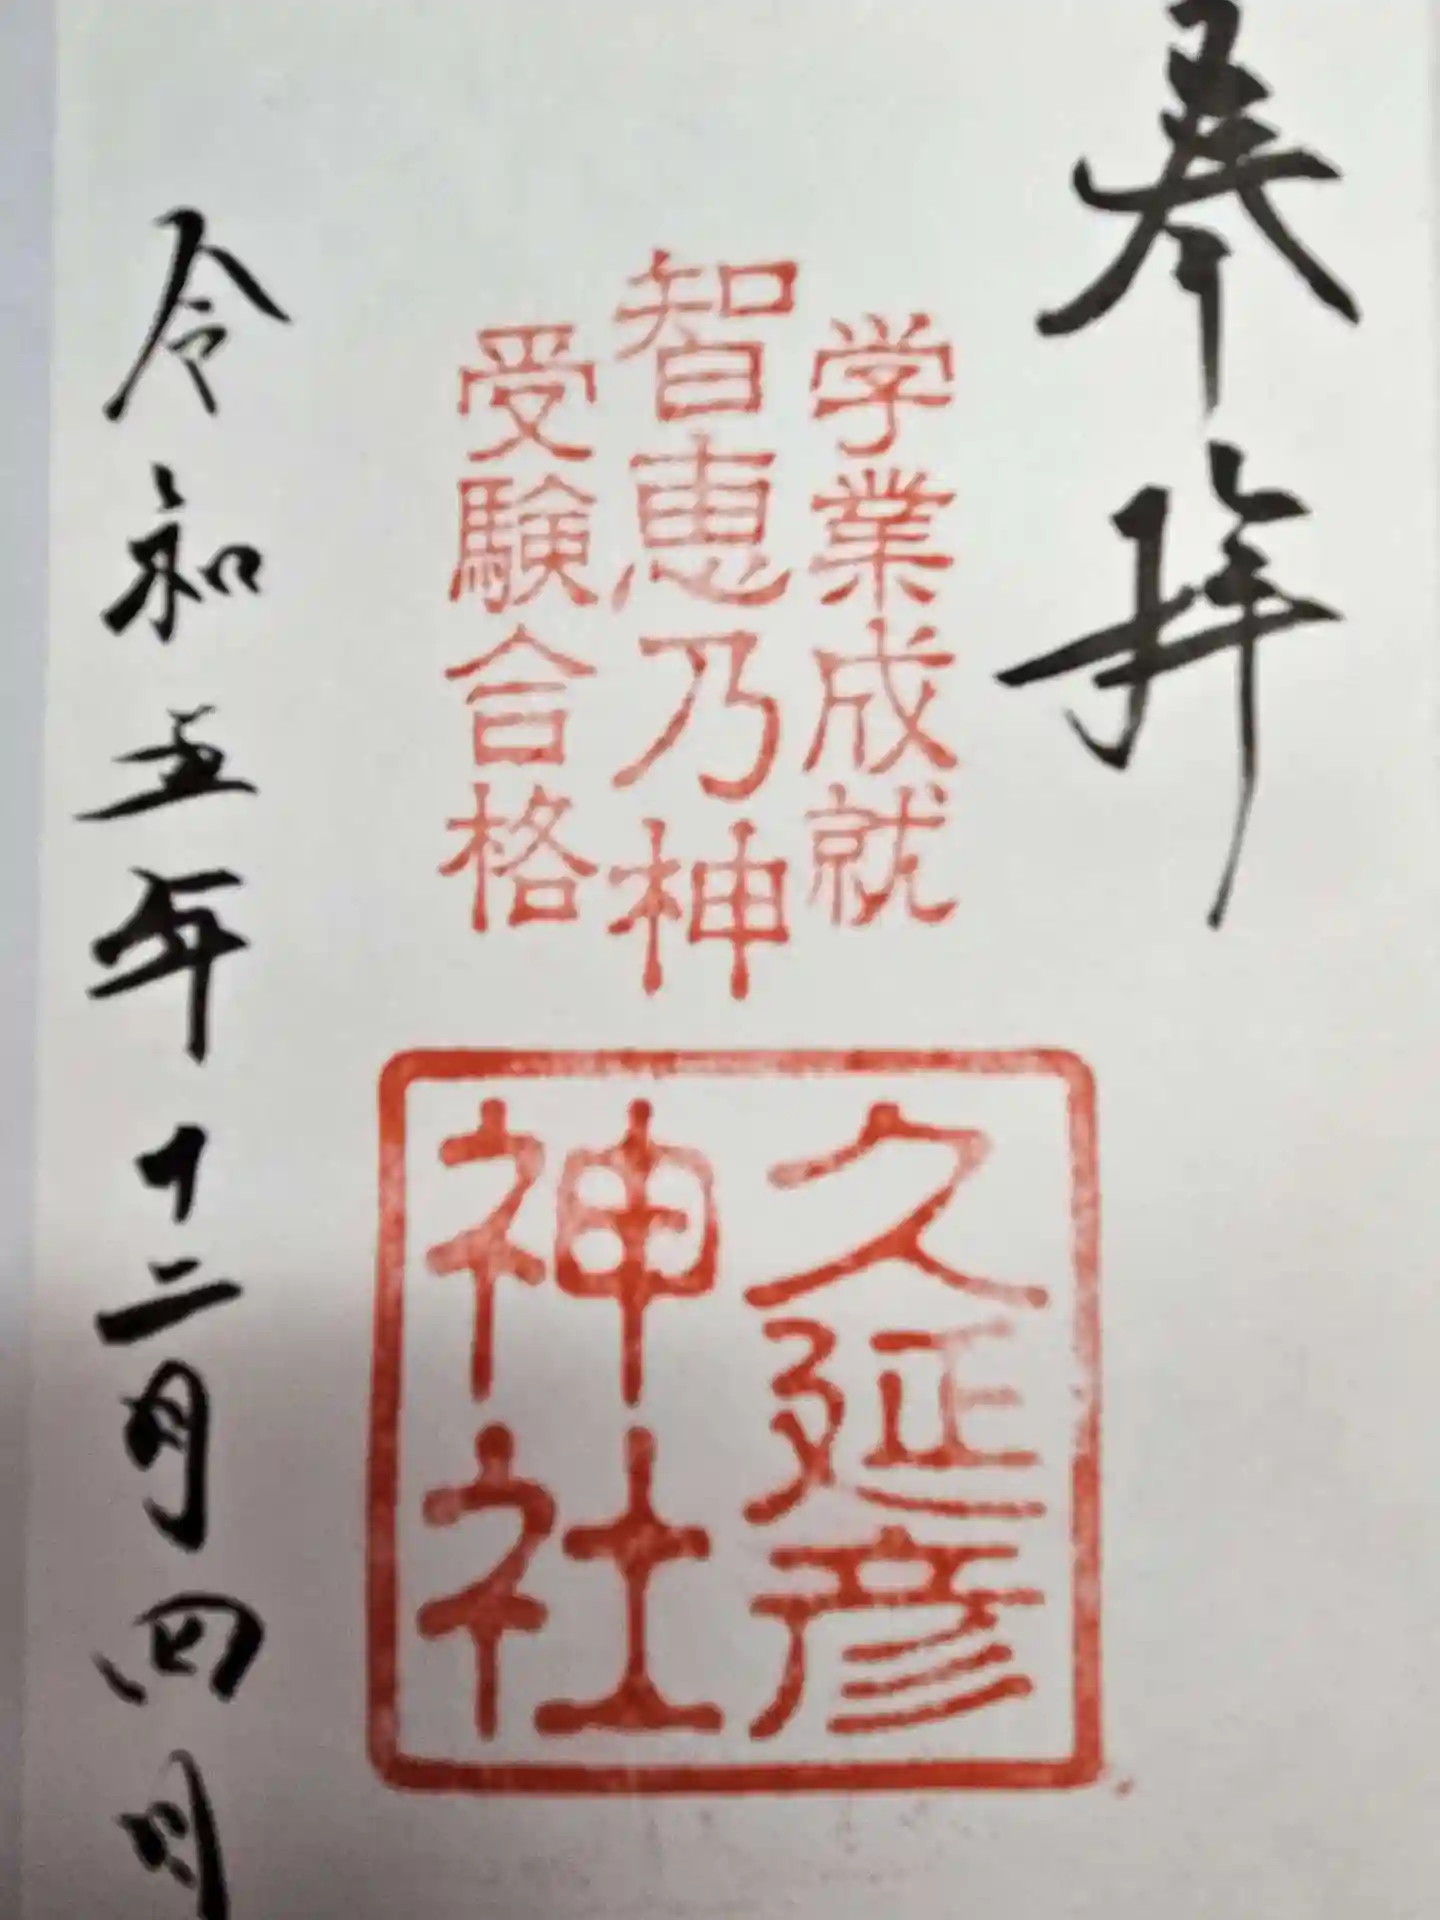 奉拝
学業成就
智恵乃神
受験合格
久延彦
神社
令和五年十二月四日